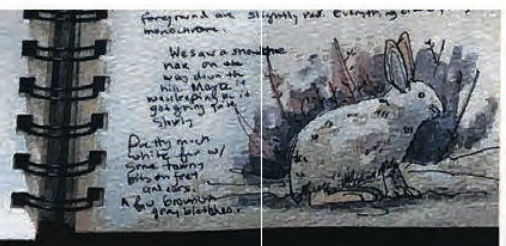 foreground are slightly red. Everything else is
monochrome.
We saw a snowshoe
hare on the
way down the
hill. Maya
was it
got going
Pretty much
white fur w/
some tawny
bits on feet
and ears.
A few brownish
gray blotches.